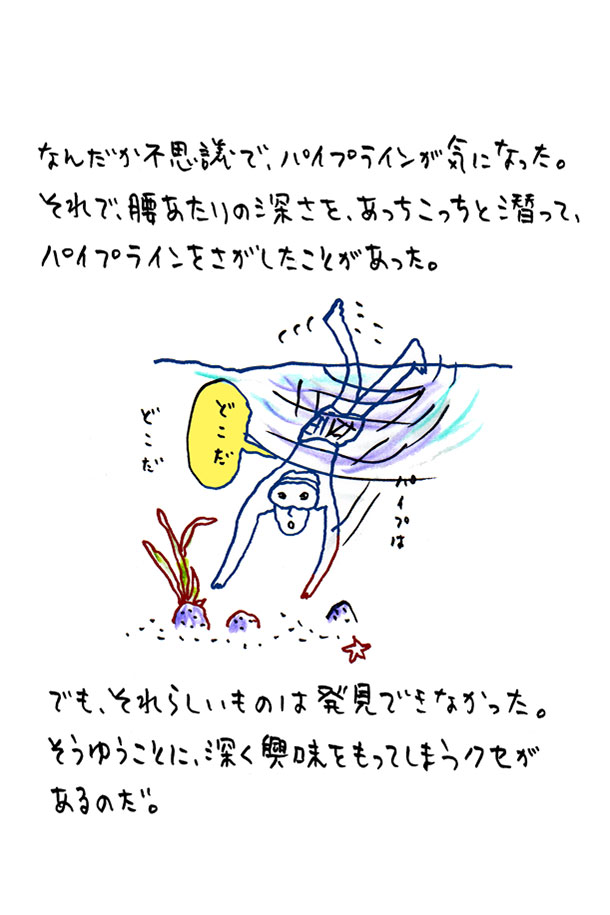 なんだか不思議で、パイプラインが気になった。
それで、腰あたりの深さを、あっちこっちと潜って、
パイプラインをさがしたことがあった。
どこだ
どこだ
パイプは
でも、それらしいものは発見できなかった。
そうゆうことに、深く興味をもってしまうクセが
あるのだ。